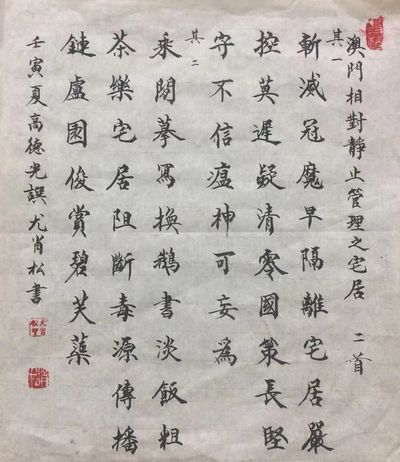 澳門相對靜止管理之宅居 二首
其一
斬滅冠魔早隔離宅居嚴
控莫遲疑清零國策長堅
守不信瘟神可妄為
其二
乘閑摹寫換鵝書淡飯粗
茶樂宅居阻斷毒源傳播
鏈盧園俊賞碧芙蕖
壬寅夏高德光譔尤肖松書